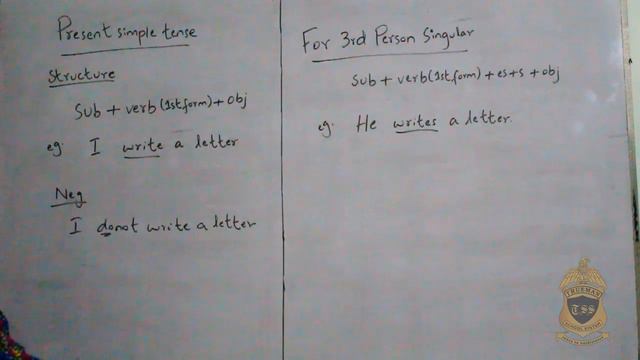 Present simple tense
Structure
Sub + verb (1st form) + obj
eg. I write a letter
Neg
I donot write a letter
For 3rd Person Singular
sub + verb (1st form) + es+s + obj
eg. He writes a letter.
TRUEMAN
TSS